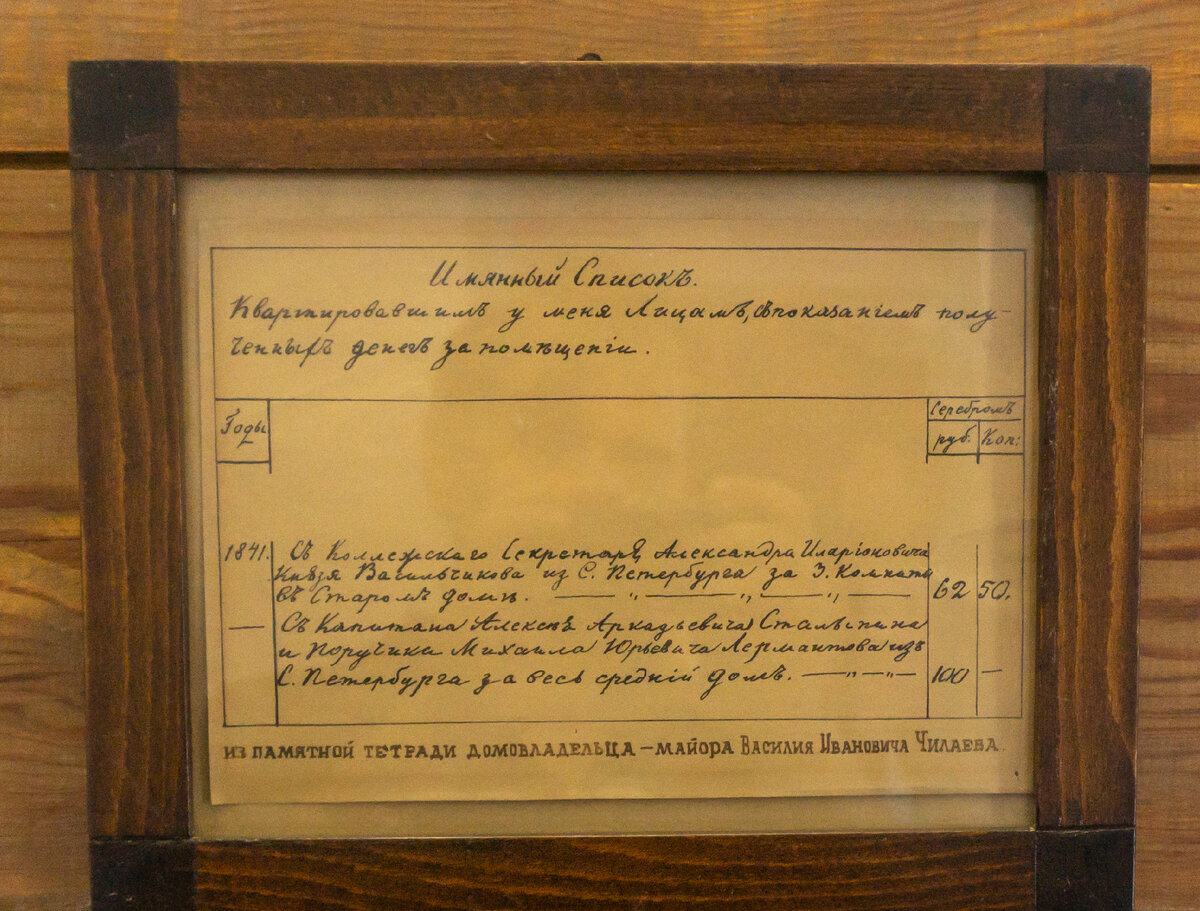 Имянный Списокъ.
Квартировавшимъ у меня Лицамъ, съ показанiемъ полу-
ченныхъ денегъ за помѣщенiи.
Годы
Серебромъ
руб. Коп:
1841. Съ Коллежскаго Секретаря Александра Иларiоновича
Князя Васильчикова из С. Петербурга за 3. Комнаты
въ Старомъ домѣ. — „ — „ — „ — 62 50.
— Съ Капитана Алексѣя Аркадьевича Столыпина
и Поручика Михаила Юрьевича Лермантова изъ
С. Петербурга за весь среднiй домъ. — „ — „ — 100 —
ИЗ ПАМЯТНОЙ ТЕТРАДИ ДОМОВЛАДЕЛЬЦА – МАЙОРА ВАСИЛИЯ ИВАНОВИЧА ЧИЛАЕВА.